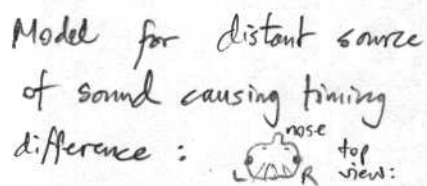 Model for distant source
of sound causing timing
difference :
nose
L R
top
view: